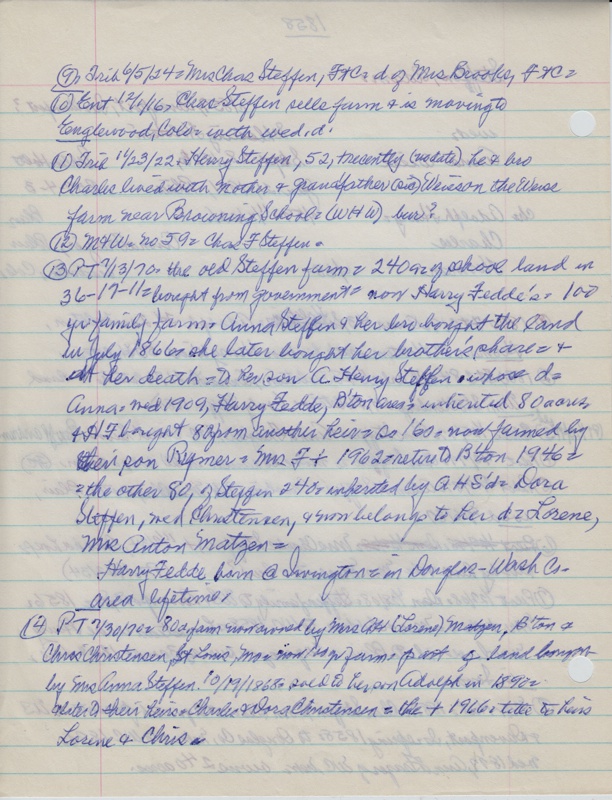 ⑨ Trib 6/5/24= Mrs Chas Steffen, F+C= d of Mrs Brooks, F+C=
⑩ Ent 12/1/16= Chas Steffen sells farm & is moving to
Englewood, Colo= with wed. d.
⑪ Trib 11/23/22= Henry Steffen, 52, recently (no date) he & bro
Charles lived with mother & grandfather (sic) Weis on the Weise
farm near Browning School= (WHW) bur?
⑫ M+W= no 59= Chas F Steffen=
⑬ PT 7/3/70= the old Steffen farm= 240a= of school land in
36-17-11= bought from government= now Harry Fedde's= 100
yr family farm= Anna Steffen & her bro bought the land
in July 1866= she later bought her brother's share= &
at her death= to her son A. Henry Steffen whose d=
Anna= wed 1909, Harry Fedde, B'ton area= inherited 80 acres
& HF bought 80 from another heir= so 160= now farmed by
their son Rymer= Mrs F + 1962= retire to B'ton 1946=
= the other 80, of Steffen 240= inherited by AHS' d= Dora
Steffen, wed Christensen, & now belongs to her d= Lorene,
Mrs Anton Matzen=
Harry Fedde born @ Irvington= in Douglas-Wash Co-
area lifetime=
⑭ PT 7/30/70= 80a farm now owned by Mrs AH (Lorene) Matzen, B'ton &
Chris Christensen, St Louis, Mo= now farm= part of land bought
by Mrs Anna Steffen 10/19/1868= sold to her son Adolph in 1890=
later to their heirs= Charles & Dora Christensen= the + 1966= title to heirs
Lorene & Chris=